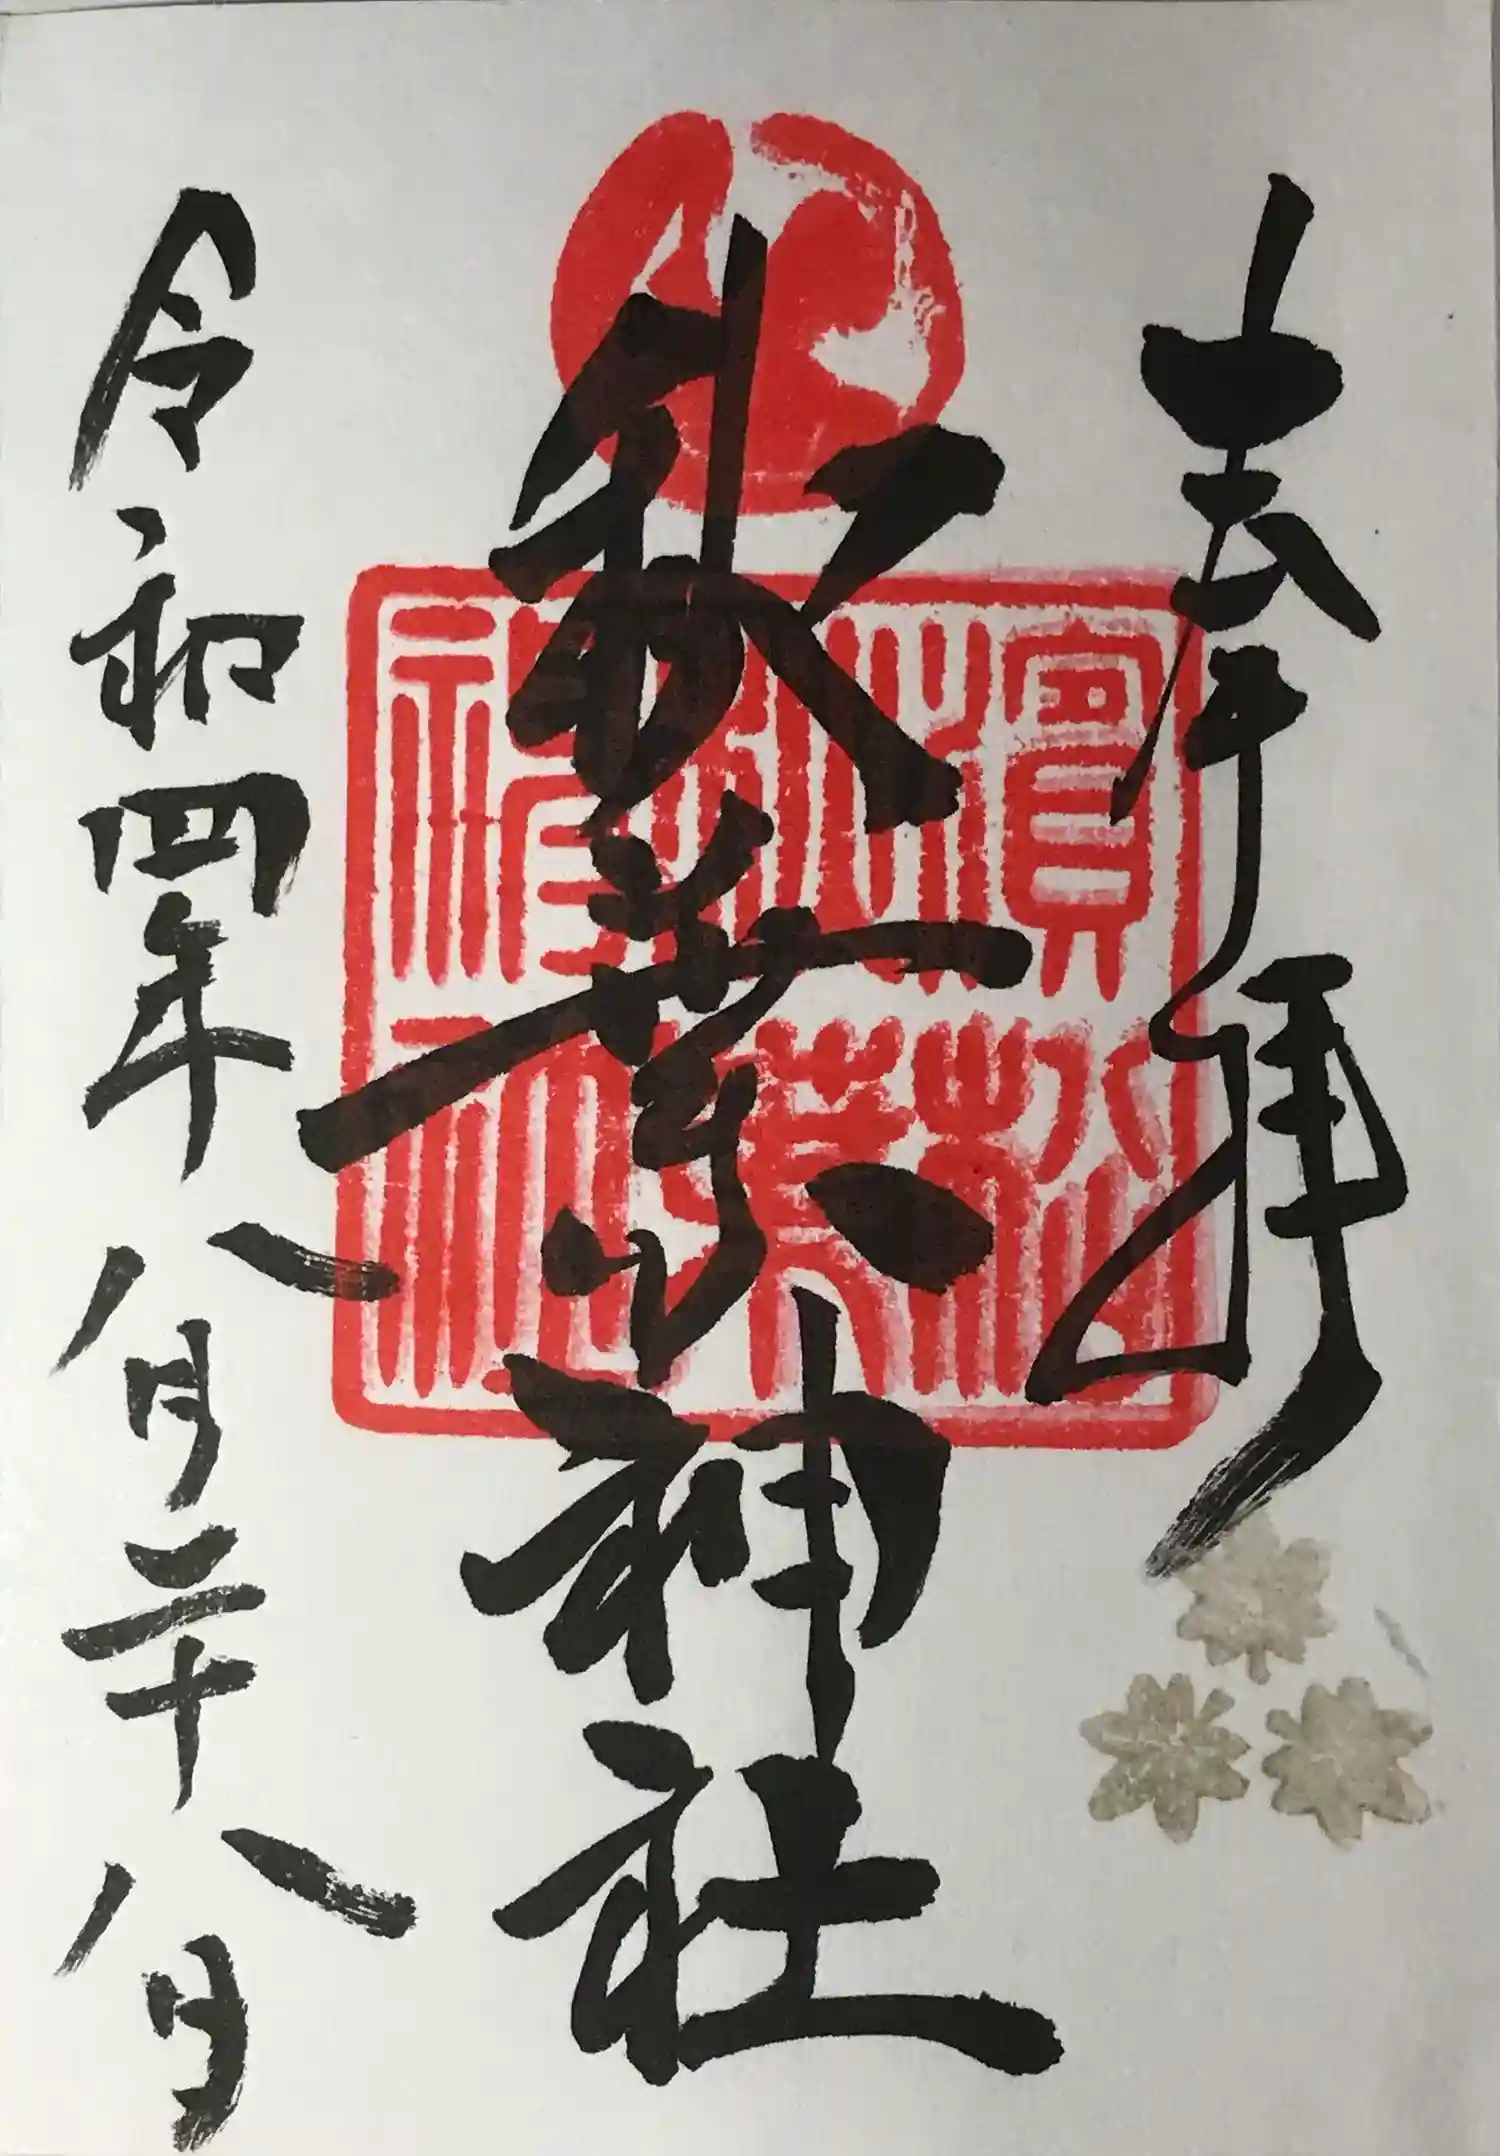 奉拝
秋葉神社
濱松
秋葉
神社
令和四年八月二十八日